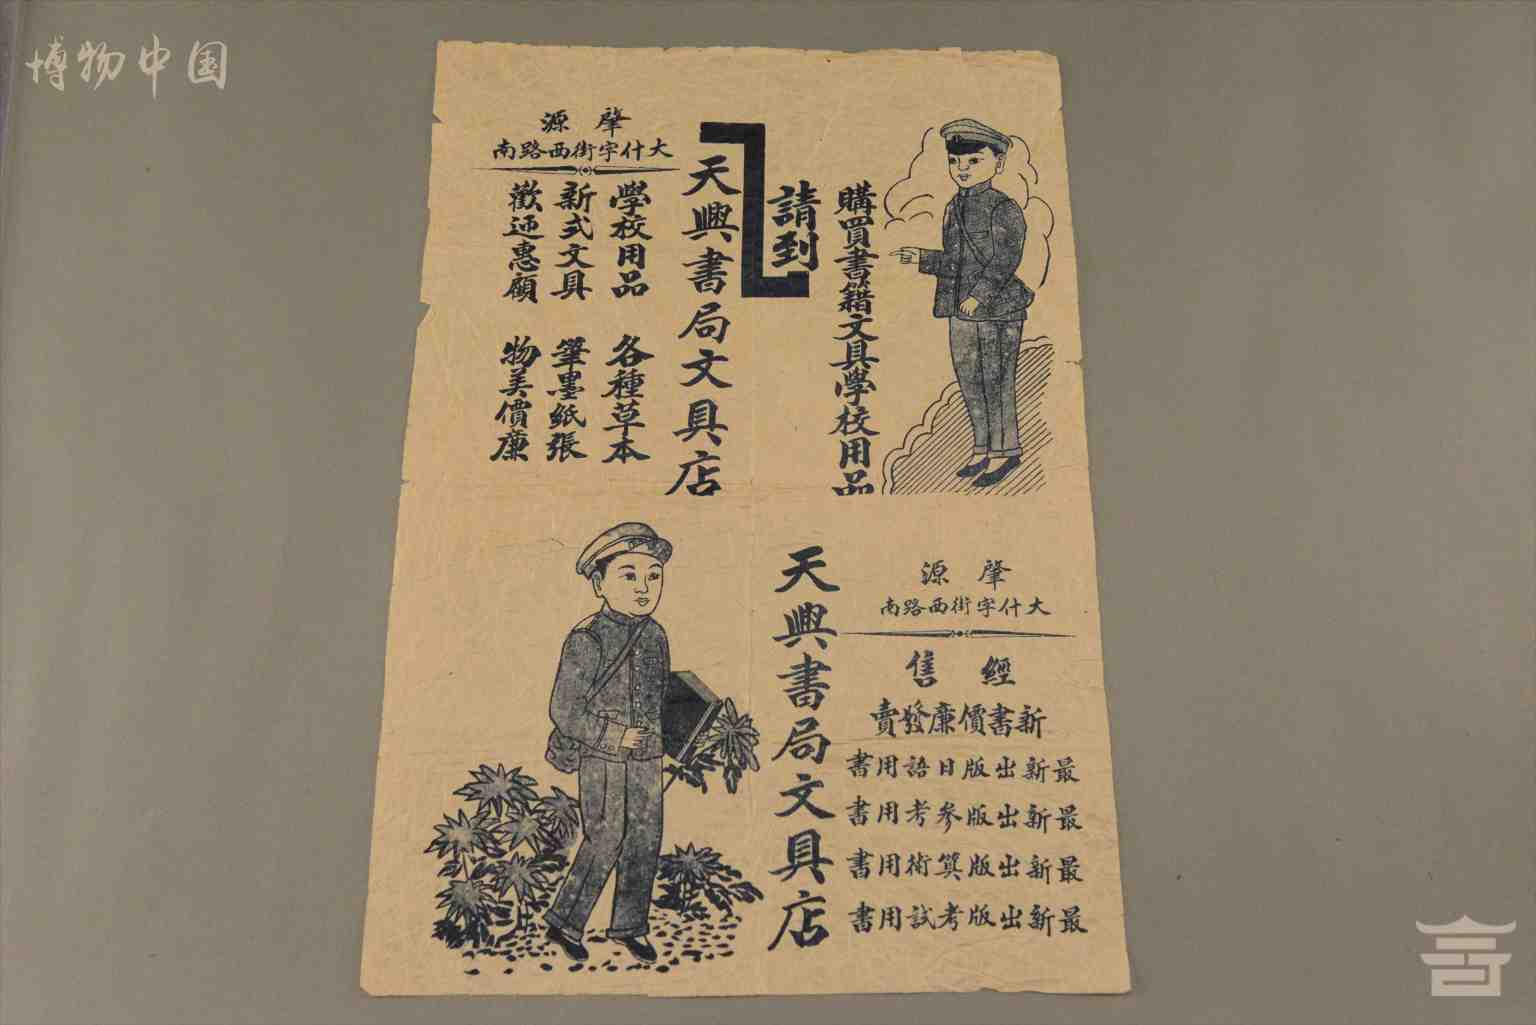 博物中国
購買書籍文具學校用品
請到
天興書局文具店
肇源
大什字街西路南
學校用品 各種草本
新式文具 筆墨紙張
歡迎惠顧 物美價廉
肇源
大什字街西路南
經售
新書價廉發賣
最新出版日語用書
最新出版參考用書
最新出版算術用書
最新出版考試用書
天興書局文具店